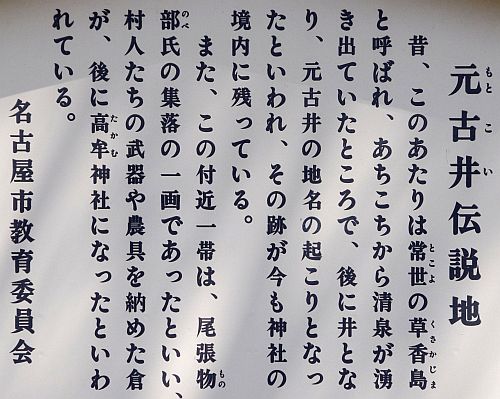 元古井伝説地
もとこい
昔、このあたりは常世の草香島
とこよ くさかじま
と呼ばれ、あちこちから清泉が湧
き出ていたところで、後に井とな
り、元古井の地名の起こりとなっ
たといわれ、その跡が今も神社の
境内に残っている。
また、この付近一帯は、尾張物
もの
部氏の集落の一画であったといい、
のべ
村人たちの武器や農具を納めた倉
が、後に高牟神社になったといわ
たかむ
れている。
名古屋市教育委員会